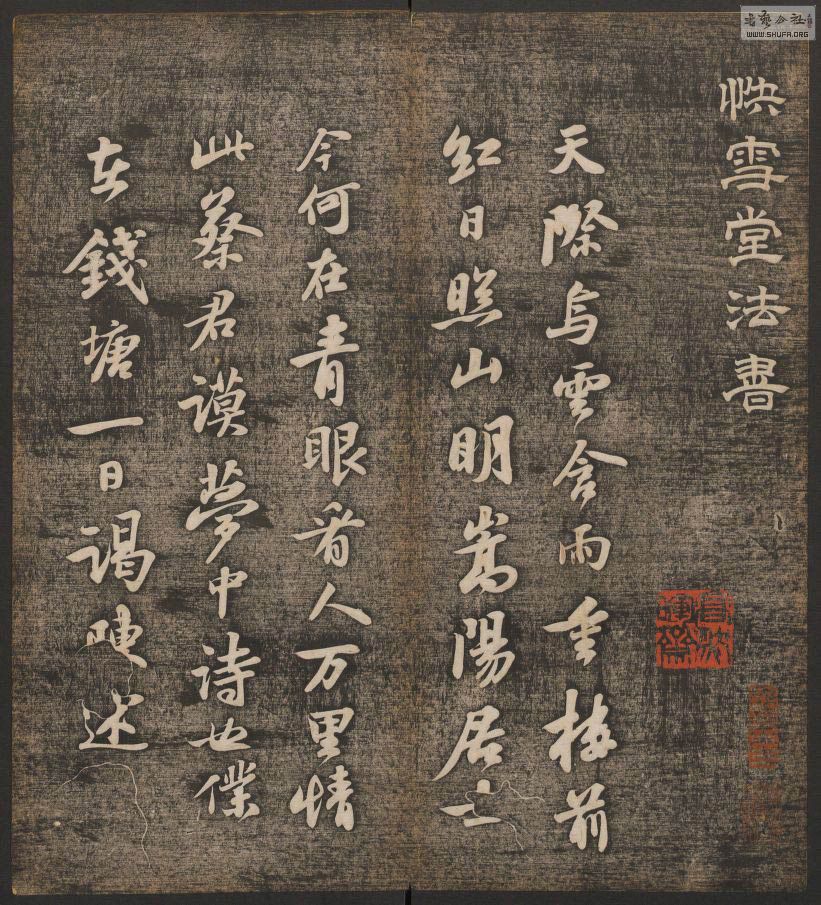 快雪堂法書
天際烏雲含雨重樓前
紅日照山明嵩陽居士
今何在青眼看人万里情
此蔡君謨夢中詩也僕
在錢塘一日謁陳述
WWW.SHUFA.ORG